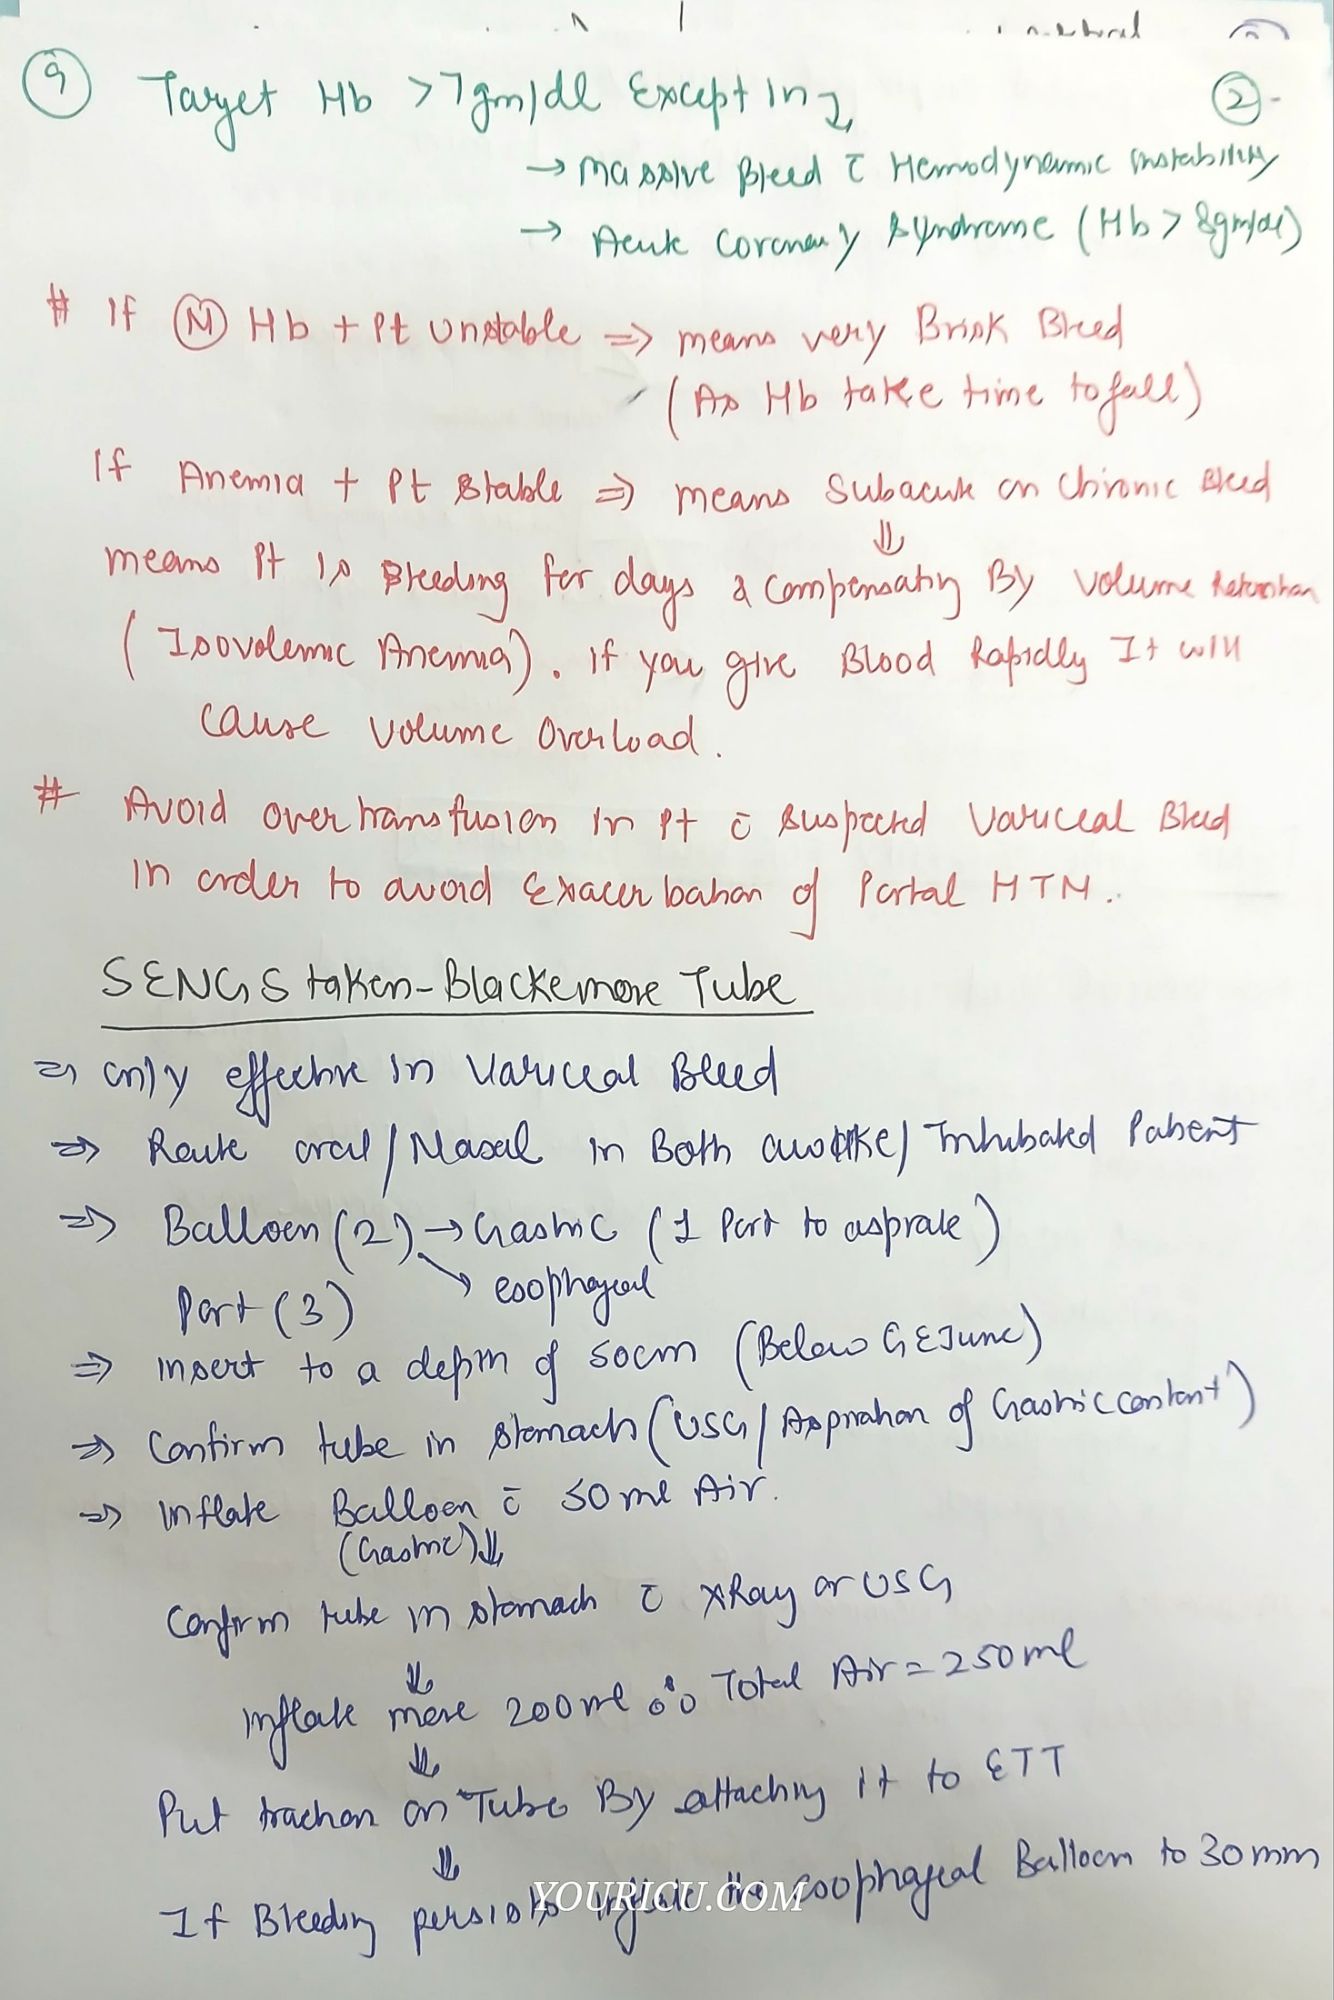 9 Target Hb >7gm/dl Except in
2
→ Massive Bleed c̄ Hemodynamic instability
→ Acute Coronary Syndrome (Hb > 8gm/dl)
# If (N) Hb + Pt Unstable ⇒ means very Brisk Bleed
(As Hb take time to fall)
If Anemia + Pt Stable ⇒ means Subacute or Chronic Bleed
⇓
means Pt is Bleeding for days & Compensating By Volume Retention
(Isovolemic Anemia). if you give Blood Rapidly It will
cause volume Overload.
# Avoid over transfusion in Pt c̄ suspected Variceal Bleed
in order to avoid Exacerbation of Portal HTN.
SENGStaken-Blackemore Tube
⇒ only effective in Variceal Bleed
⇒ Route oral/Nasal in Both awake/Intubated Patient
⇒ Balloon (2) → Gastric (1 Port to asprate)
→ esophageal
Port (3)
⇒ insert to a depth of 50cm (Below GE Junc)
⇒ Confirm tube in stomach (USG/Aspiration of Gastric content)
⇒ inflate Balloon c̄ 50ml Air.
(Gastric) ⇓
Confirm tube in stomach c̄ XRay or USG
⇓
inflate more 200ml ∴ Total Air = 250ml
⇓
Put traction on Tube By attaching it to ETT
⇓
If Bleeding persists inflate the esophageal Balloon to 30mm
YOURICU.COM